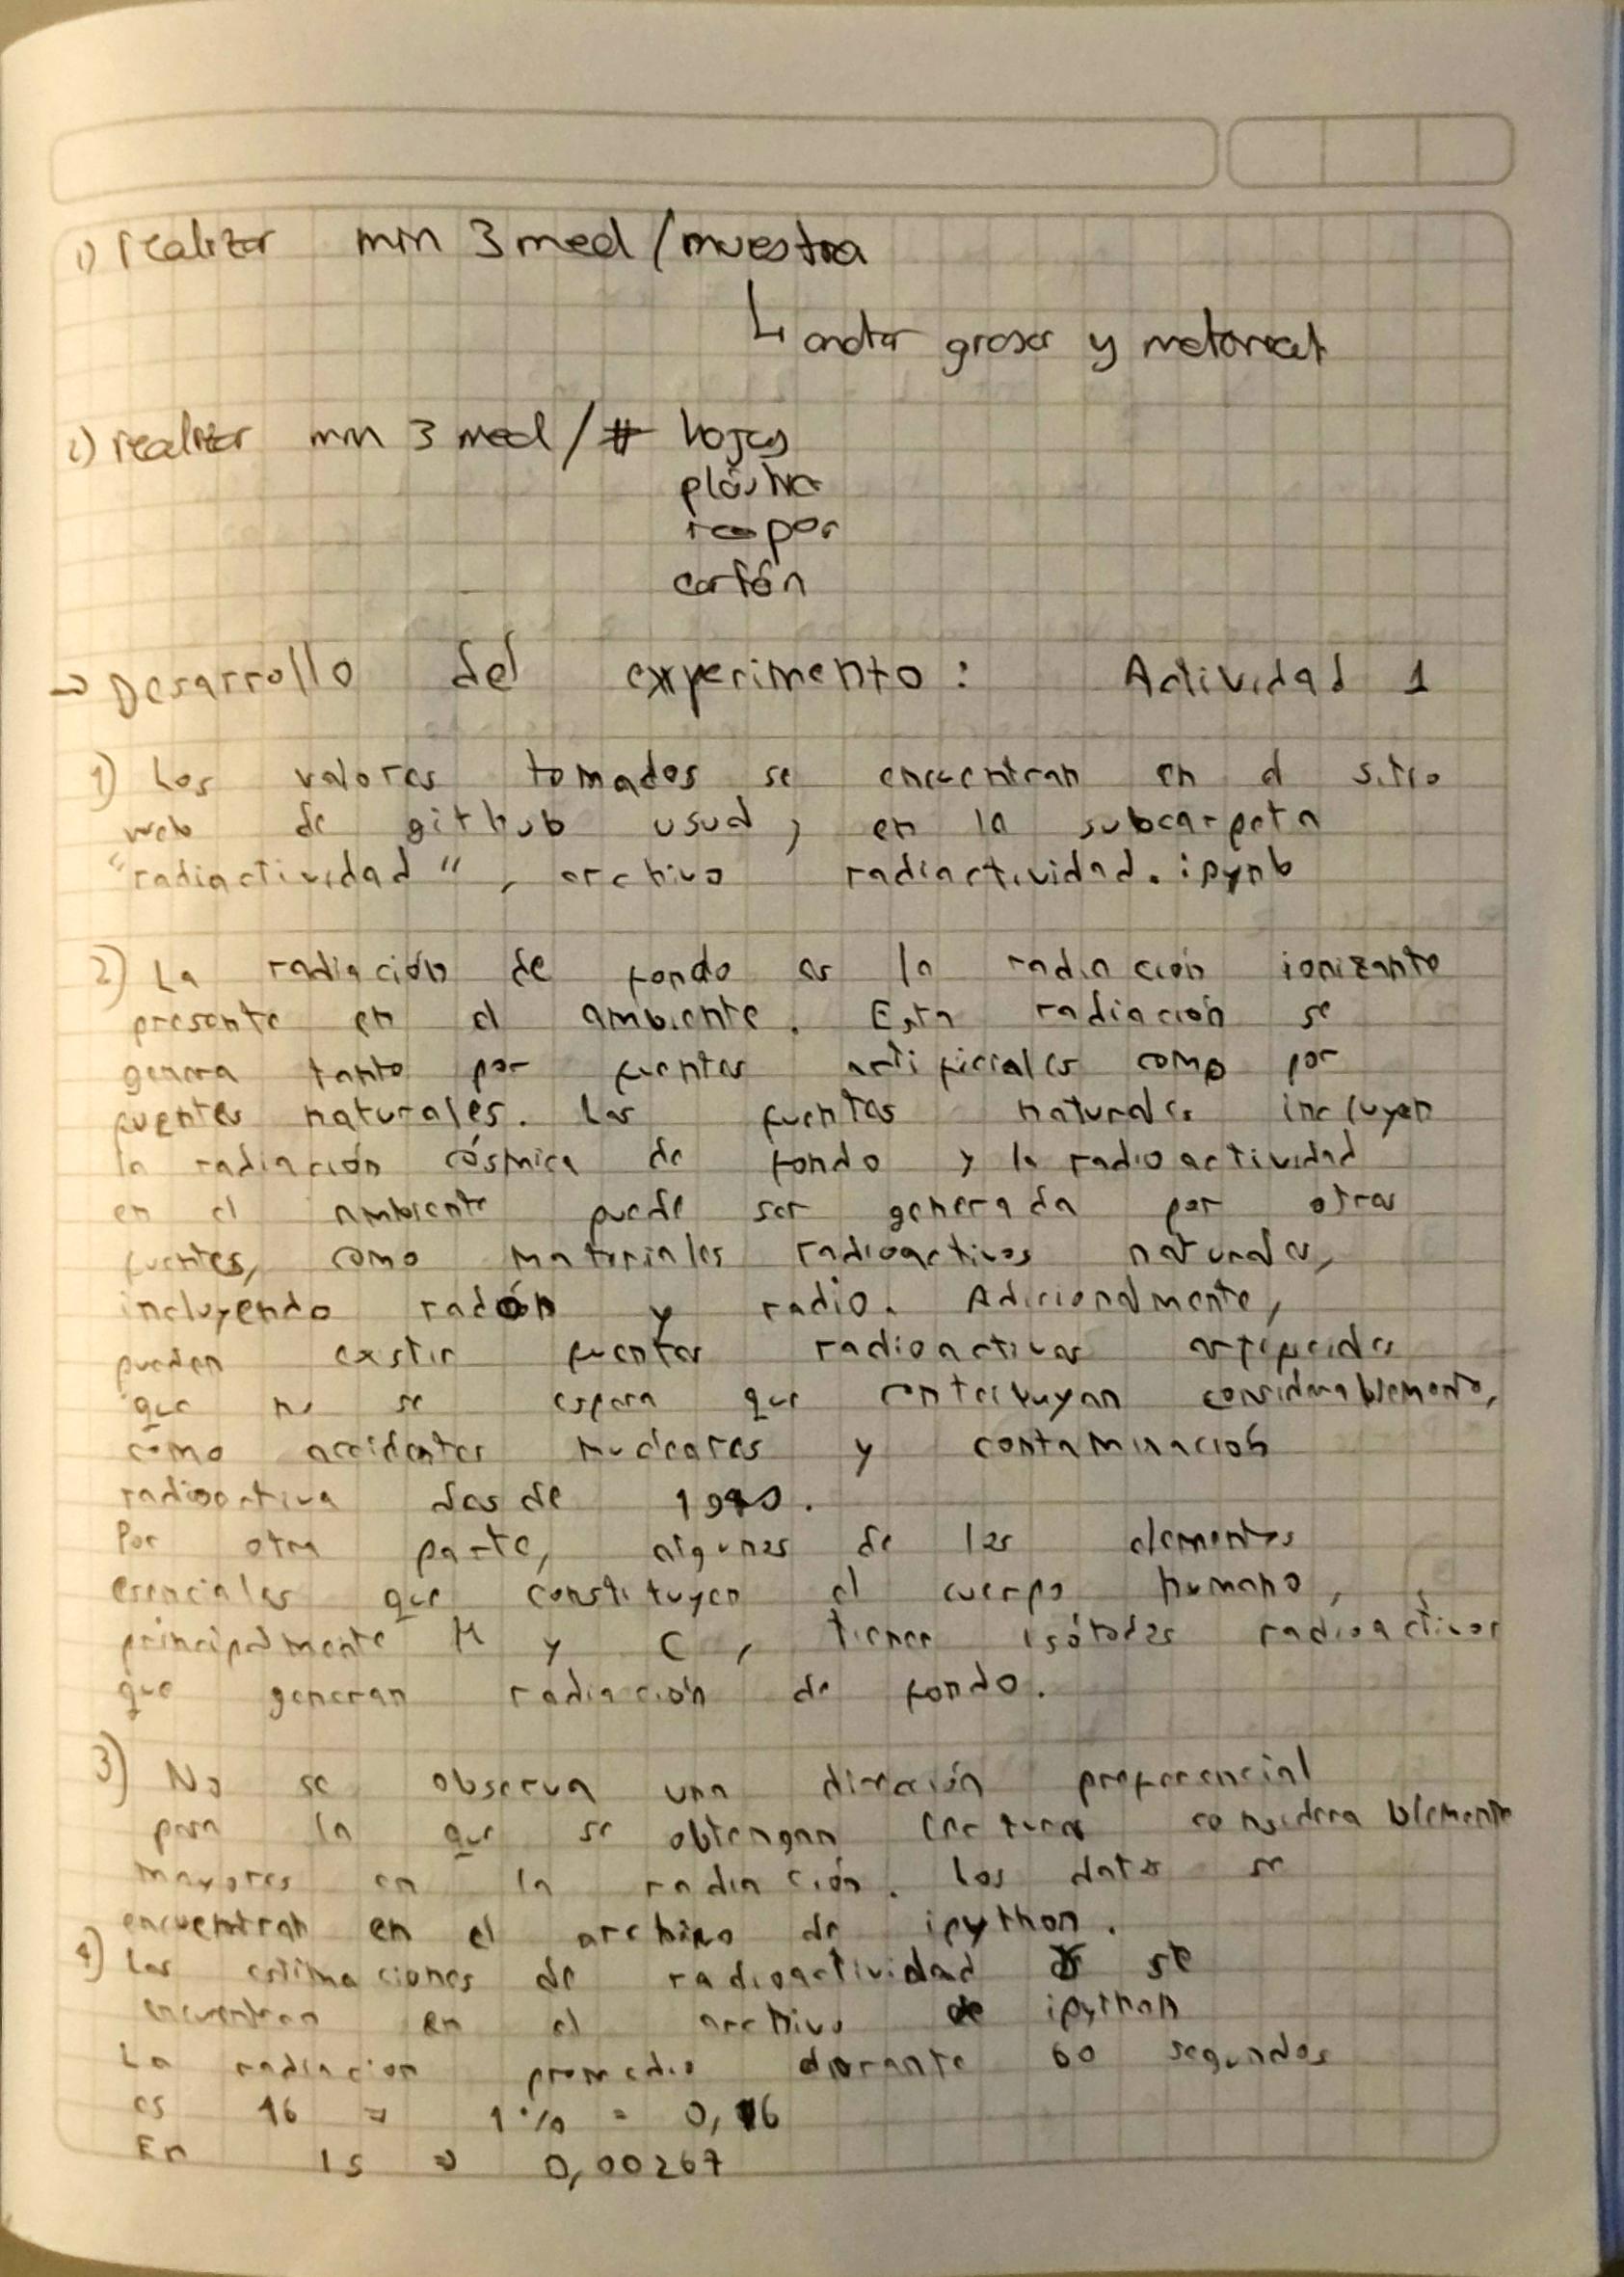 1) realizar min 3 med / muestra
↳ anotar grosor y material
2) realizar min 3 med / # hojas
plástico
cartón
→ Desarrollo del experimento: Actividad 1
1) Los valores tomados se encuentran en el sitio
web de github usual, en la subcarpeta
"radiactividad", archivo radiactividad.ipynb
2) La radiación de fondo es la radiación ionizante
presente en el ambiente. Esta radiación se
genera tanto por fuentes artificiales como por
fuentes naturales. Las fuentes naturales incluyen
la radiación cósmica de fondo y la radioactividad
en el ambiente puede ser generada por otras
fuentes, como materiales radioactivos naturales,
incluyendo radón y radio. Adicionalmente,
pueden existir fuentes radioactivas artificiales
que no se espera que contribuyan considerablemente,
como accidentes nucleares y contaminación
radioactiva desde 1940.
Por otra parte, algunos de los elementos
esenciales que constituyen el cuerpo humano,
principalmente K y C, tienen isótopos radioactivos
que generan radiación de fondo.
3) No se observa una dirección preferencial
para la que se obtengan lecturas considerablemente
mayores en la radiación. Los datos se
encuentran en el archivo de ipython.
4) Las estimaciones de radioactividad se
encuentran en el archivo de ipython
La radiación promedio durante 60 segundos
es 16 ⇒ 1% = 0,16
En 1s ⇒ 0,00267